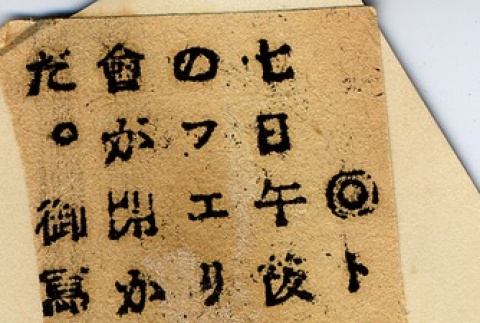 ◎ト
七日午後
のフエリ
會が出か
だ。御寫